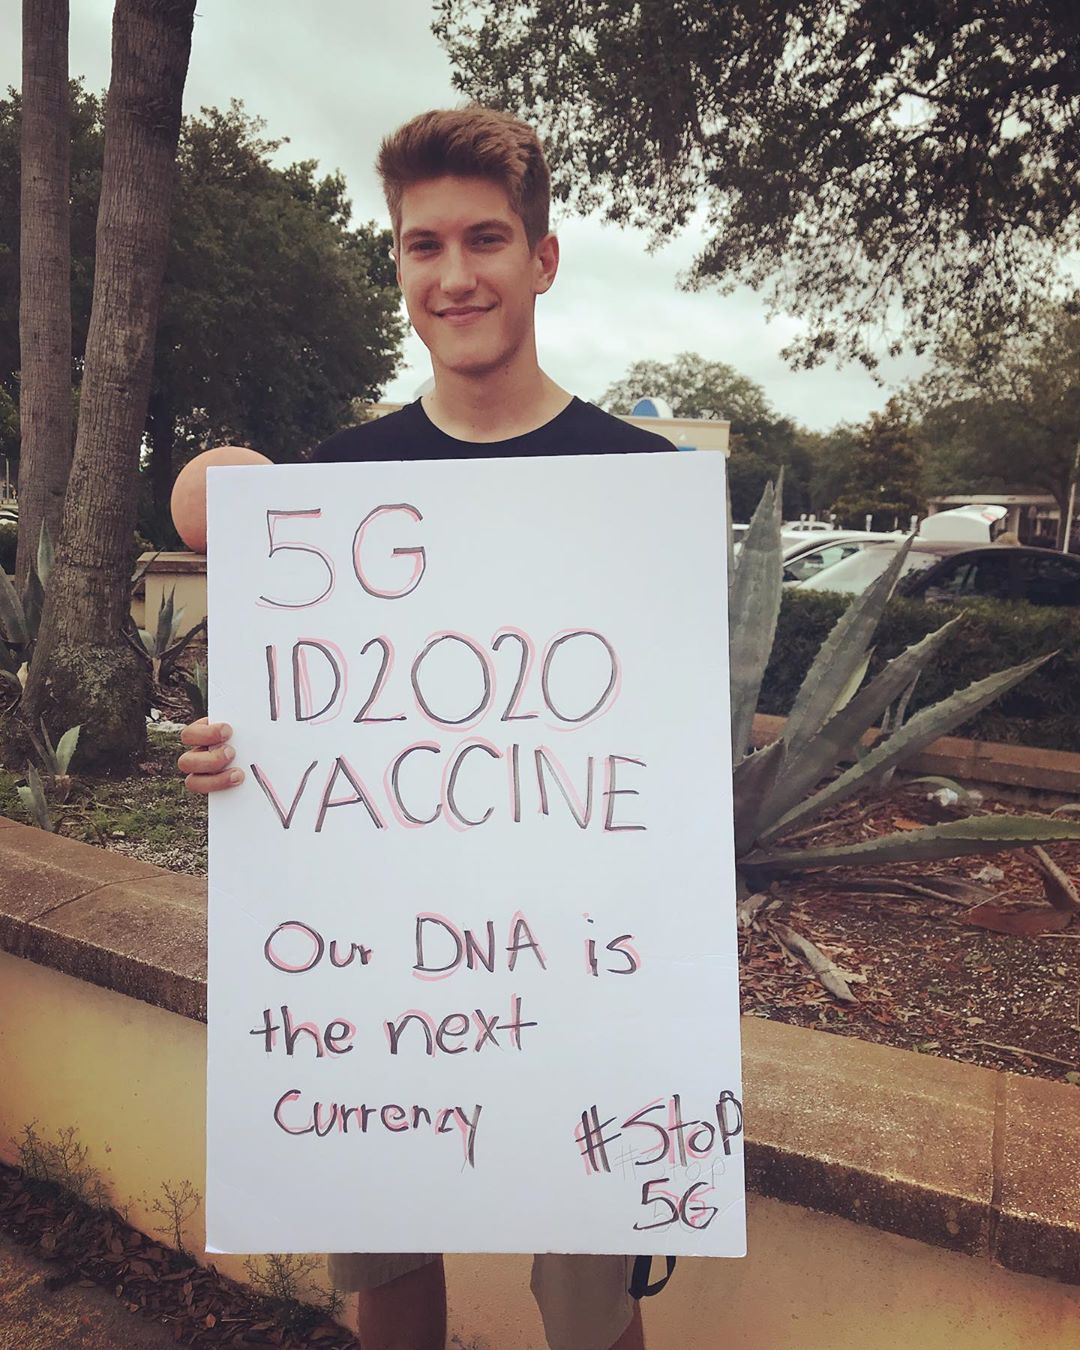 5G
ID2020
VACCINE
Our DNA is
the next
Currency
#Stop
5G